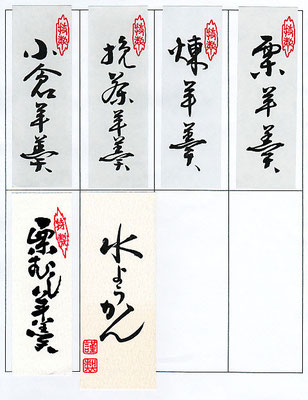 特製
栗羊羹
特製
煉羊羹
特製
挽茶羊羹
特製
小倉羊羹
水ようかん
特製
栗むし羊羹